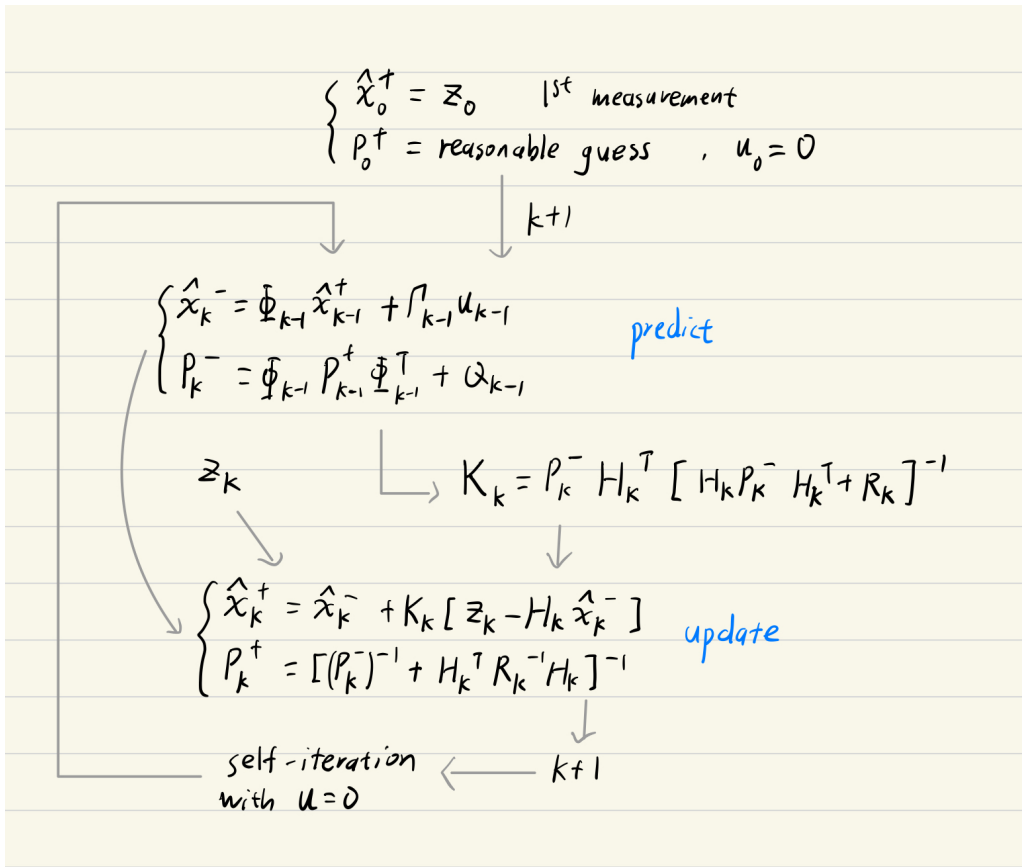 x̂₀⁺ = z₀ 1st measurement
P₀⁺ = reasonable guess , u₀ = 0
k+1
x̂ₖ⁻ = Φₖ₋₁ x̂ₖ₋₁⁺ + Γₖ₋₁ uₖ₋₁
predict
Pₖ⁻ = Φₖ₋₁ Pₖ₋₁⁺ Φₖ₋₁ᵀ + Qₖ₋₁
zₖ
Kₖ = Pₖ⁻ Hₖᵀ [ Hₖ Pₖ⁻ Hₖᵀ + Rₖ ]⁻¹
x̂ₖ⁺ = x̂ₖ⁻ + Kₖ [ zₖ − Hₖ x̂ₖ⁻ ]
update
Pₖ⁺ = [(Pₖ⁻)⁻¹ + Hₖᵀ Rₖ⁻¹ Hₖ ]⁻¹
k+1
self-iteration
with u = 0